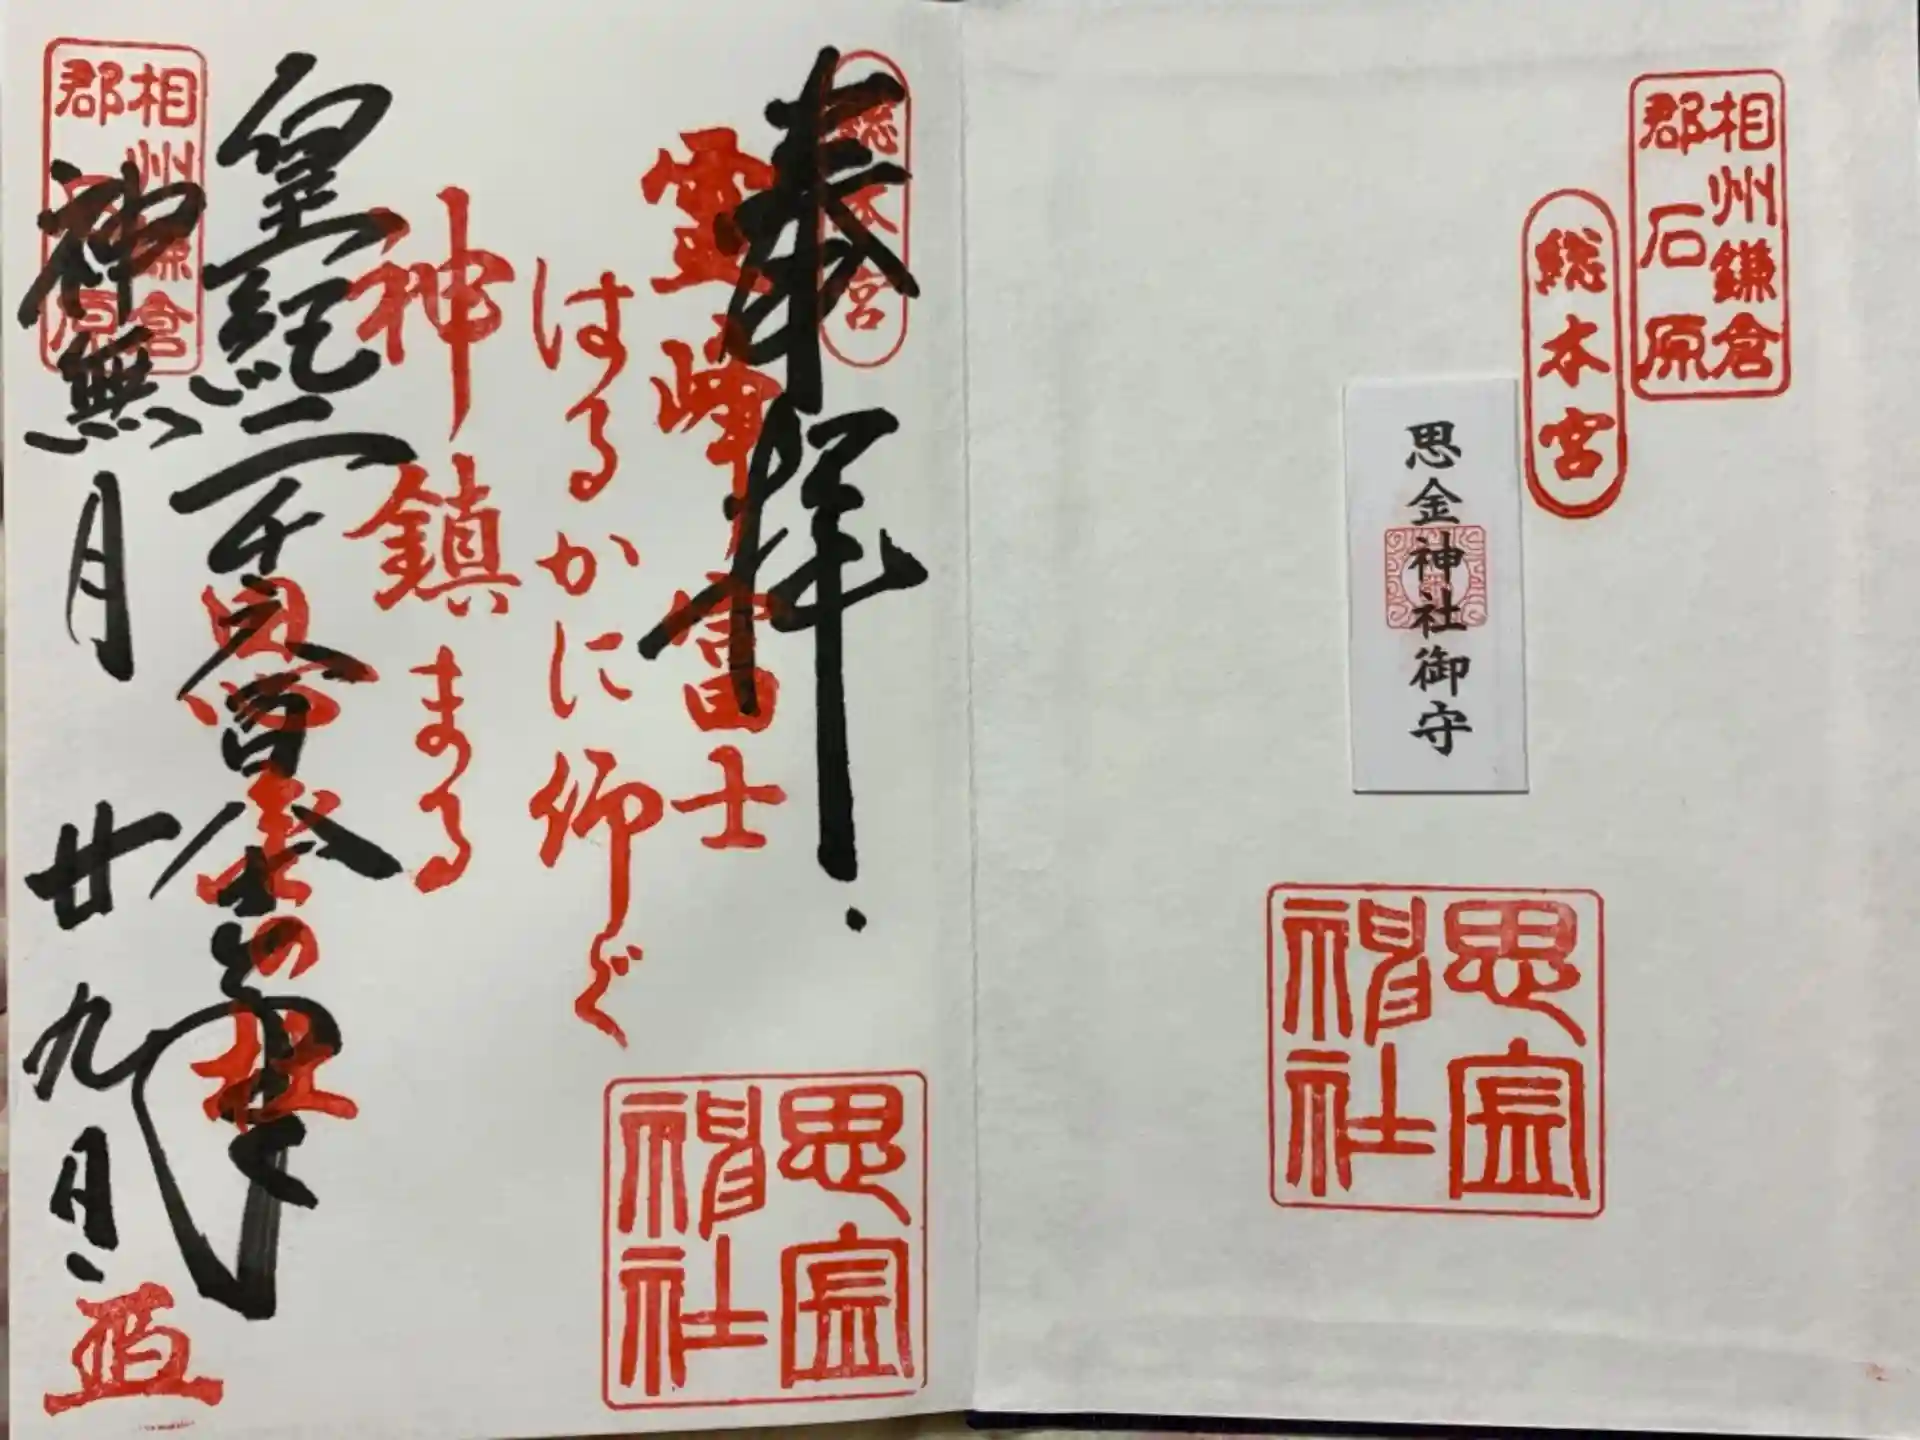 相州鎌倉
郡石原
総本宮
思金神社御守
思金
神社
総本宮
奉拝
霊峰富士
はるかに仰ぐ
神鎮まる
思金の杜
皇紀二千六百
神無月廿九日
相州鎌倉
郡石原
思金
神社